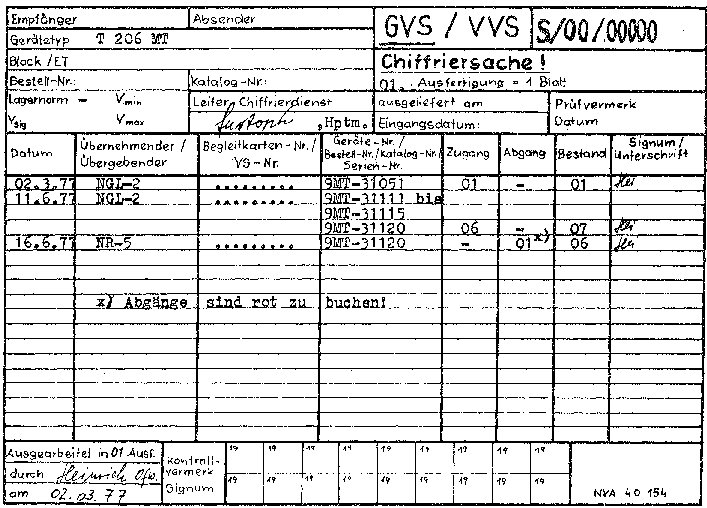 Empfänger Absender GVS / VVS S/00/00000
Gerätetyp T 206 MT
Block /ET Chiffriersache!
Bestell-Nr.: Katalog-Nr: 01. Ausfertigung = 1 Blatt
Lagernorm - Vmin Leiter Chiffrierdienst ausgeliefert am Prüfvermerk
Vsig Vmax , Hptm. Eingangsdatum: Datum
Datum Übernehmender / Übergebender Begleitkarten-Nr./ VS-Nr. Geräte-Nr./ Bestell-Nr./Katalog-Nr./ Serien-Nr. Zugang Abgang Bestand Signum/ Unterschrift
02.3.77 NGL-2 ......... 9MT-31051 01 - 01 Hei
11.6.77 NGL-2 ......... 9MT-31111 bis
9MT-31115
9MT-31120 06 - 07 Hei
16.6.77 NR-5 ......... 9MT-31120 - 01x) 06 Hei
x) Abgänge sind rot zu buchen!
Ausgearbeitet in 01 Ausf. Kontroll- 19 19 19 19 19 19 19 19 19
durch Heinrich Ofw. vermerk
am 02.03.77 Signum 19 19 19 19 19 19 19 19 19
NVA 40 154